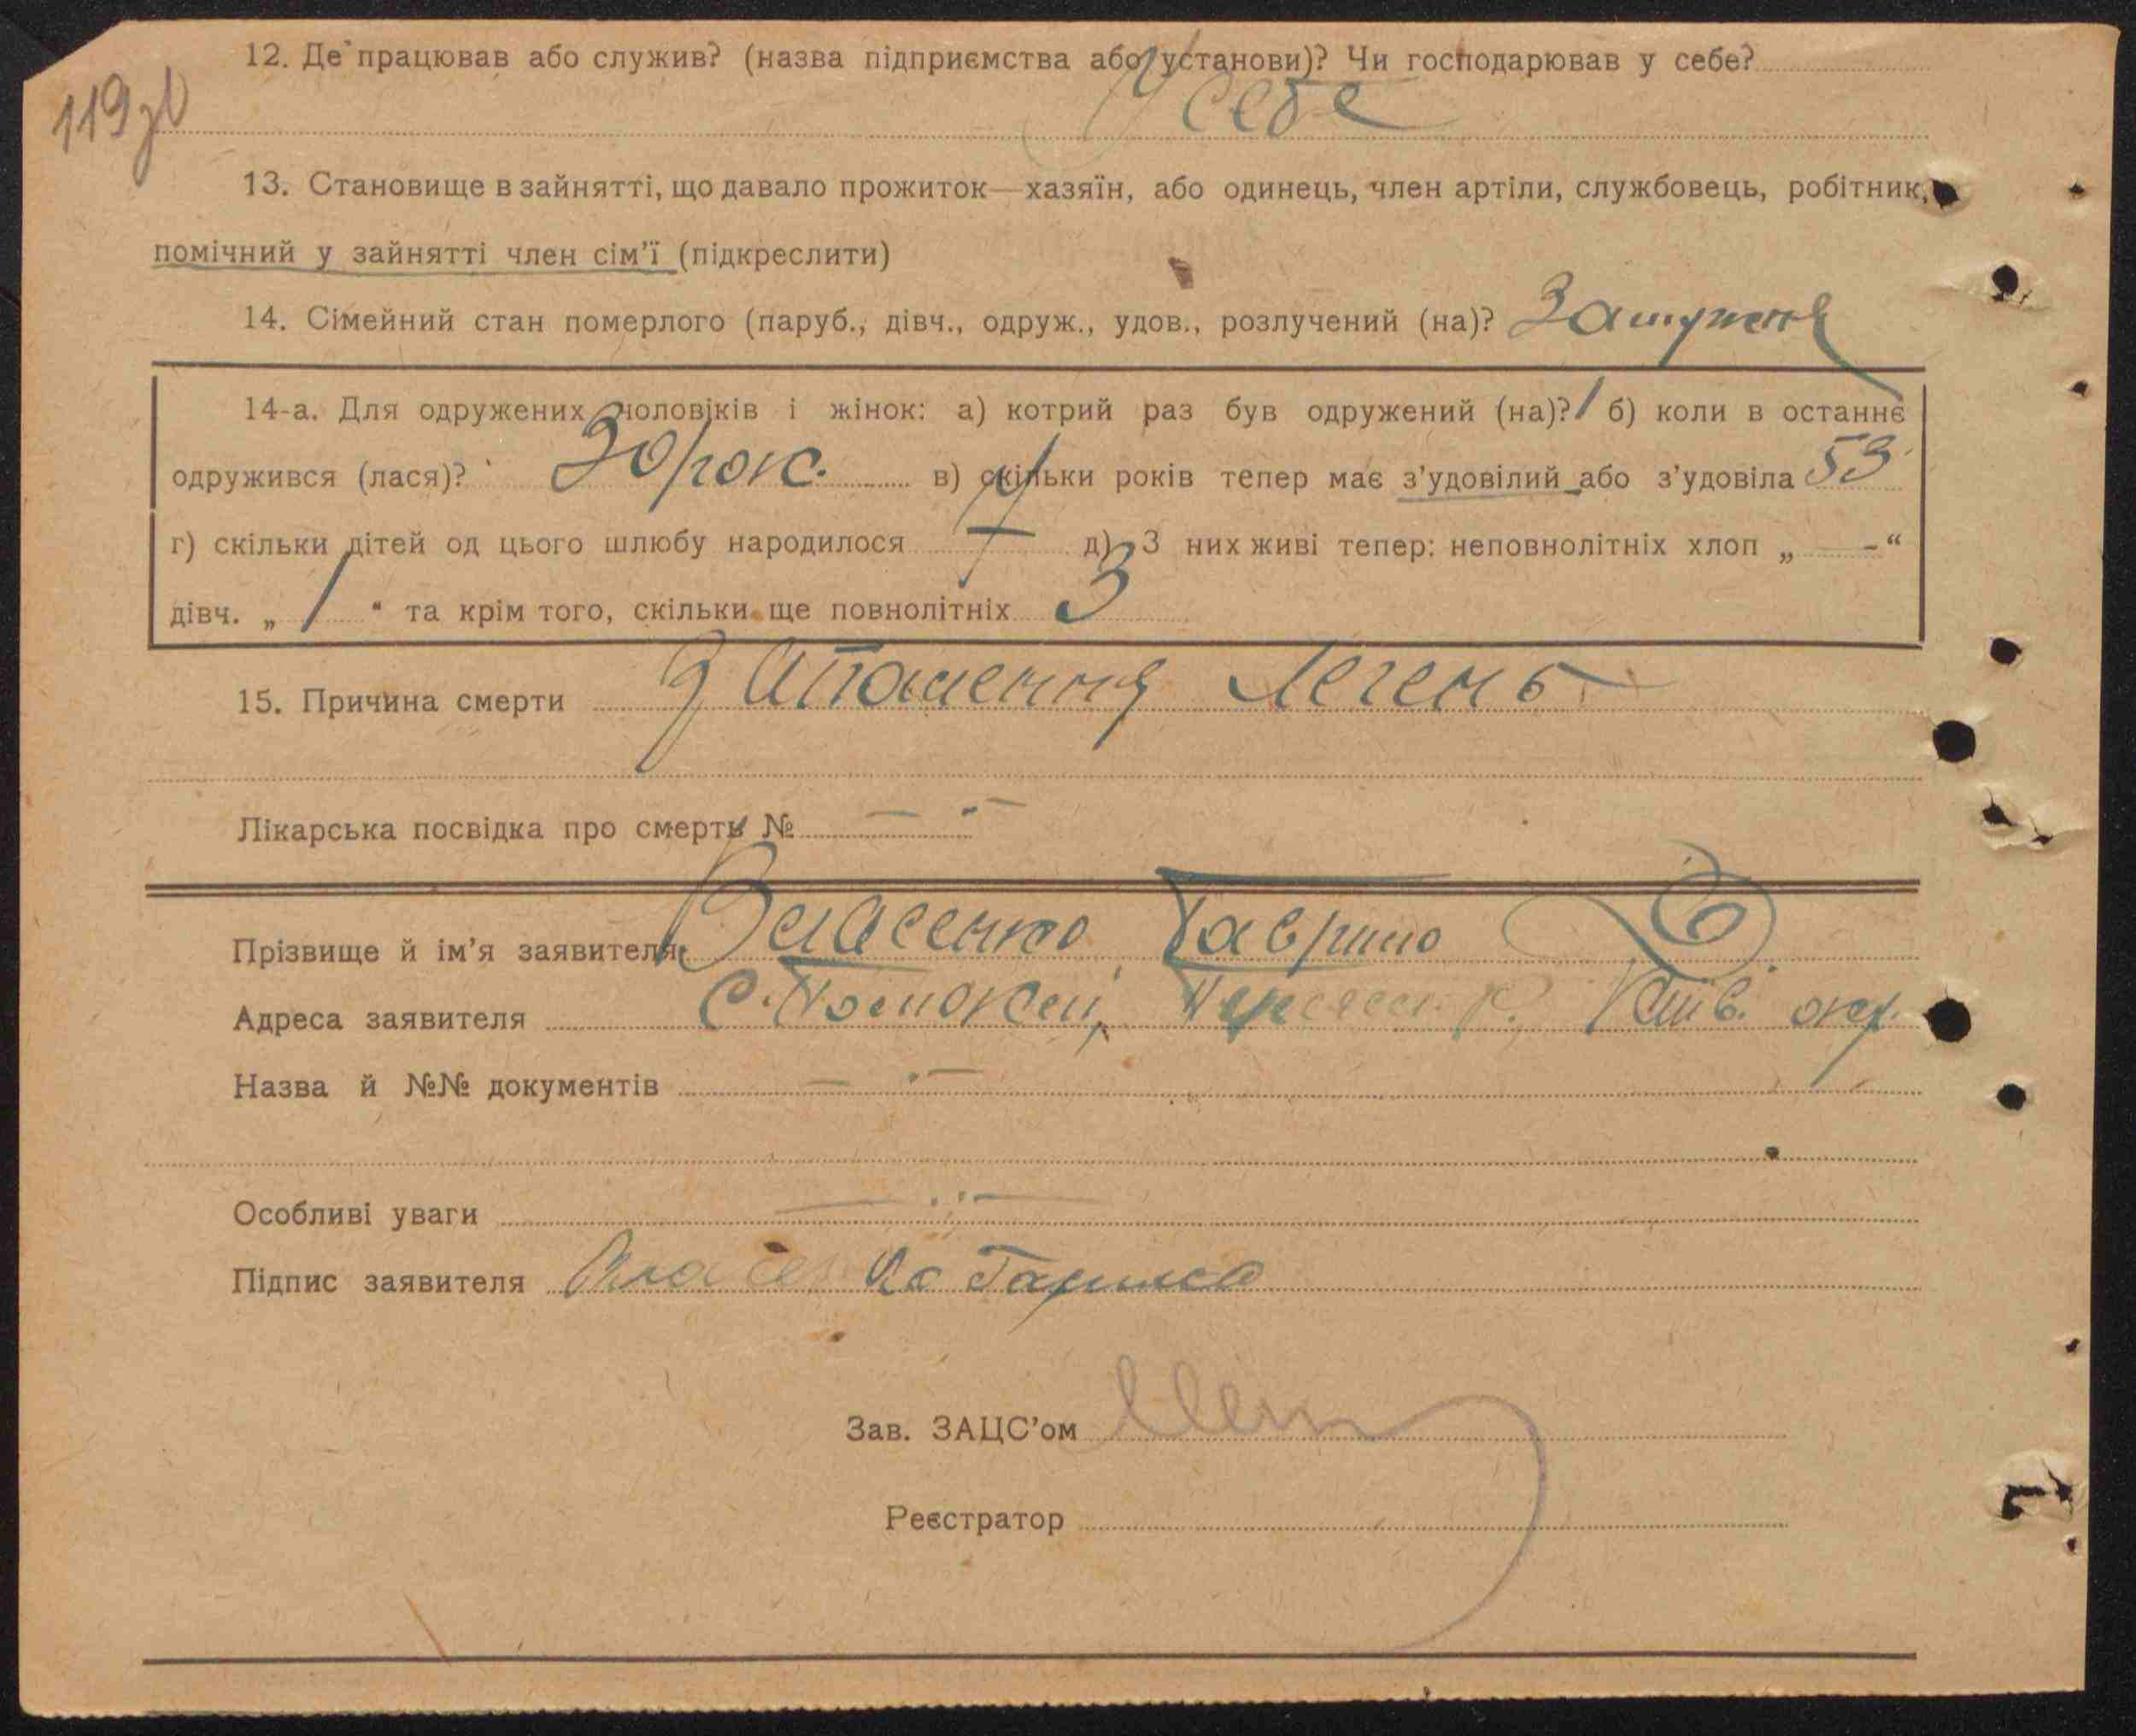 119 зв
12. Де працював або служив? (назва підприємства або установи)? Чи господарював у себе?
У себе
13. Становище в зайнятті, що давало прожиток—хазяїн, або одинець, член артіли, службовець, робітник,
помічний у зайнятті член сім'ї (підкреслити)
14. Сімейний стан померлого (паруб., дівч., одруж., удов., розлучений (на)? Замужня
14-а. Для одружених чоловіків і жінок: а) котрий раз був одружений (на)? 1 б) коли в останнє
одружився (лася)? 30 рок. в) скільки років тепер має з'удовілий або з'удовіла 53
г) скільки дітей од цього шлюбу народилося 7 д) З них живі тепер: неповнолітніх хлоп „ - “
дівч. „ 1 “ та крім того, скільки ще повнолітніх 3
15. Причина смерти Запалення Легень
Лікарська посвідка про смерть № — " —
Прізвище й ім'я заявителя Власенко Гаврило
Адреса заявителя с. Помоклі, Переясл. р. Київ. окр.
Назва й №№ документів — " —
Особливі уваги — " —
Підпис заявителя Власенко
Зав. ЗАЦС'ом
Реєстратор